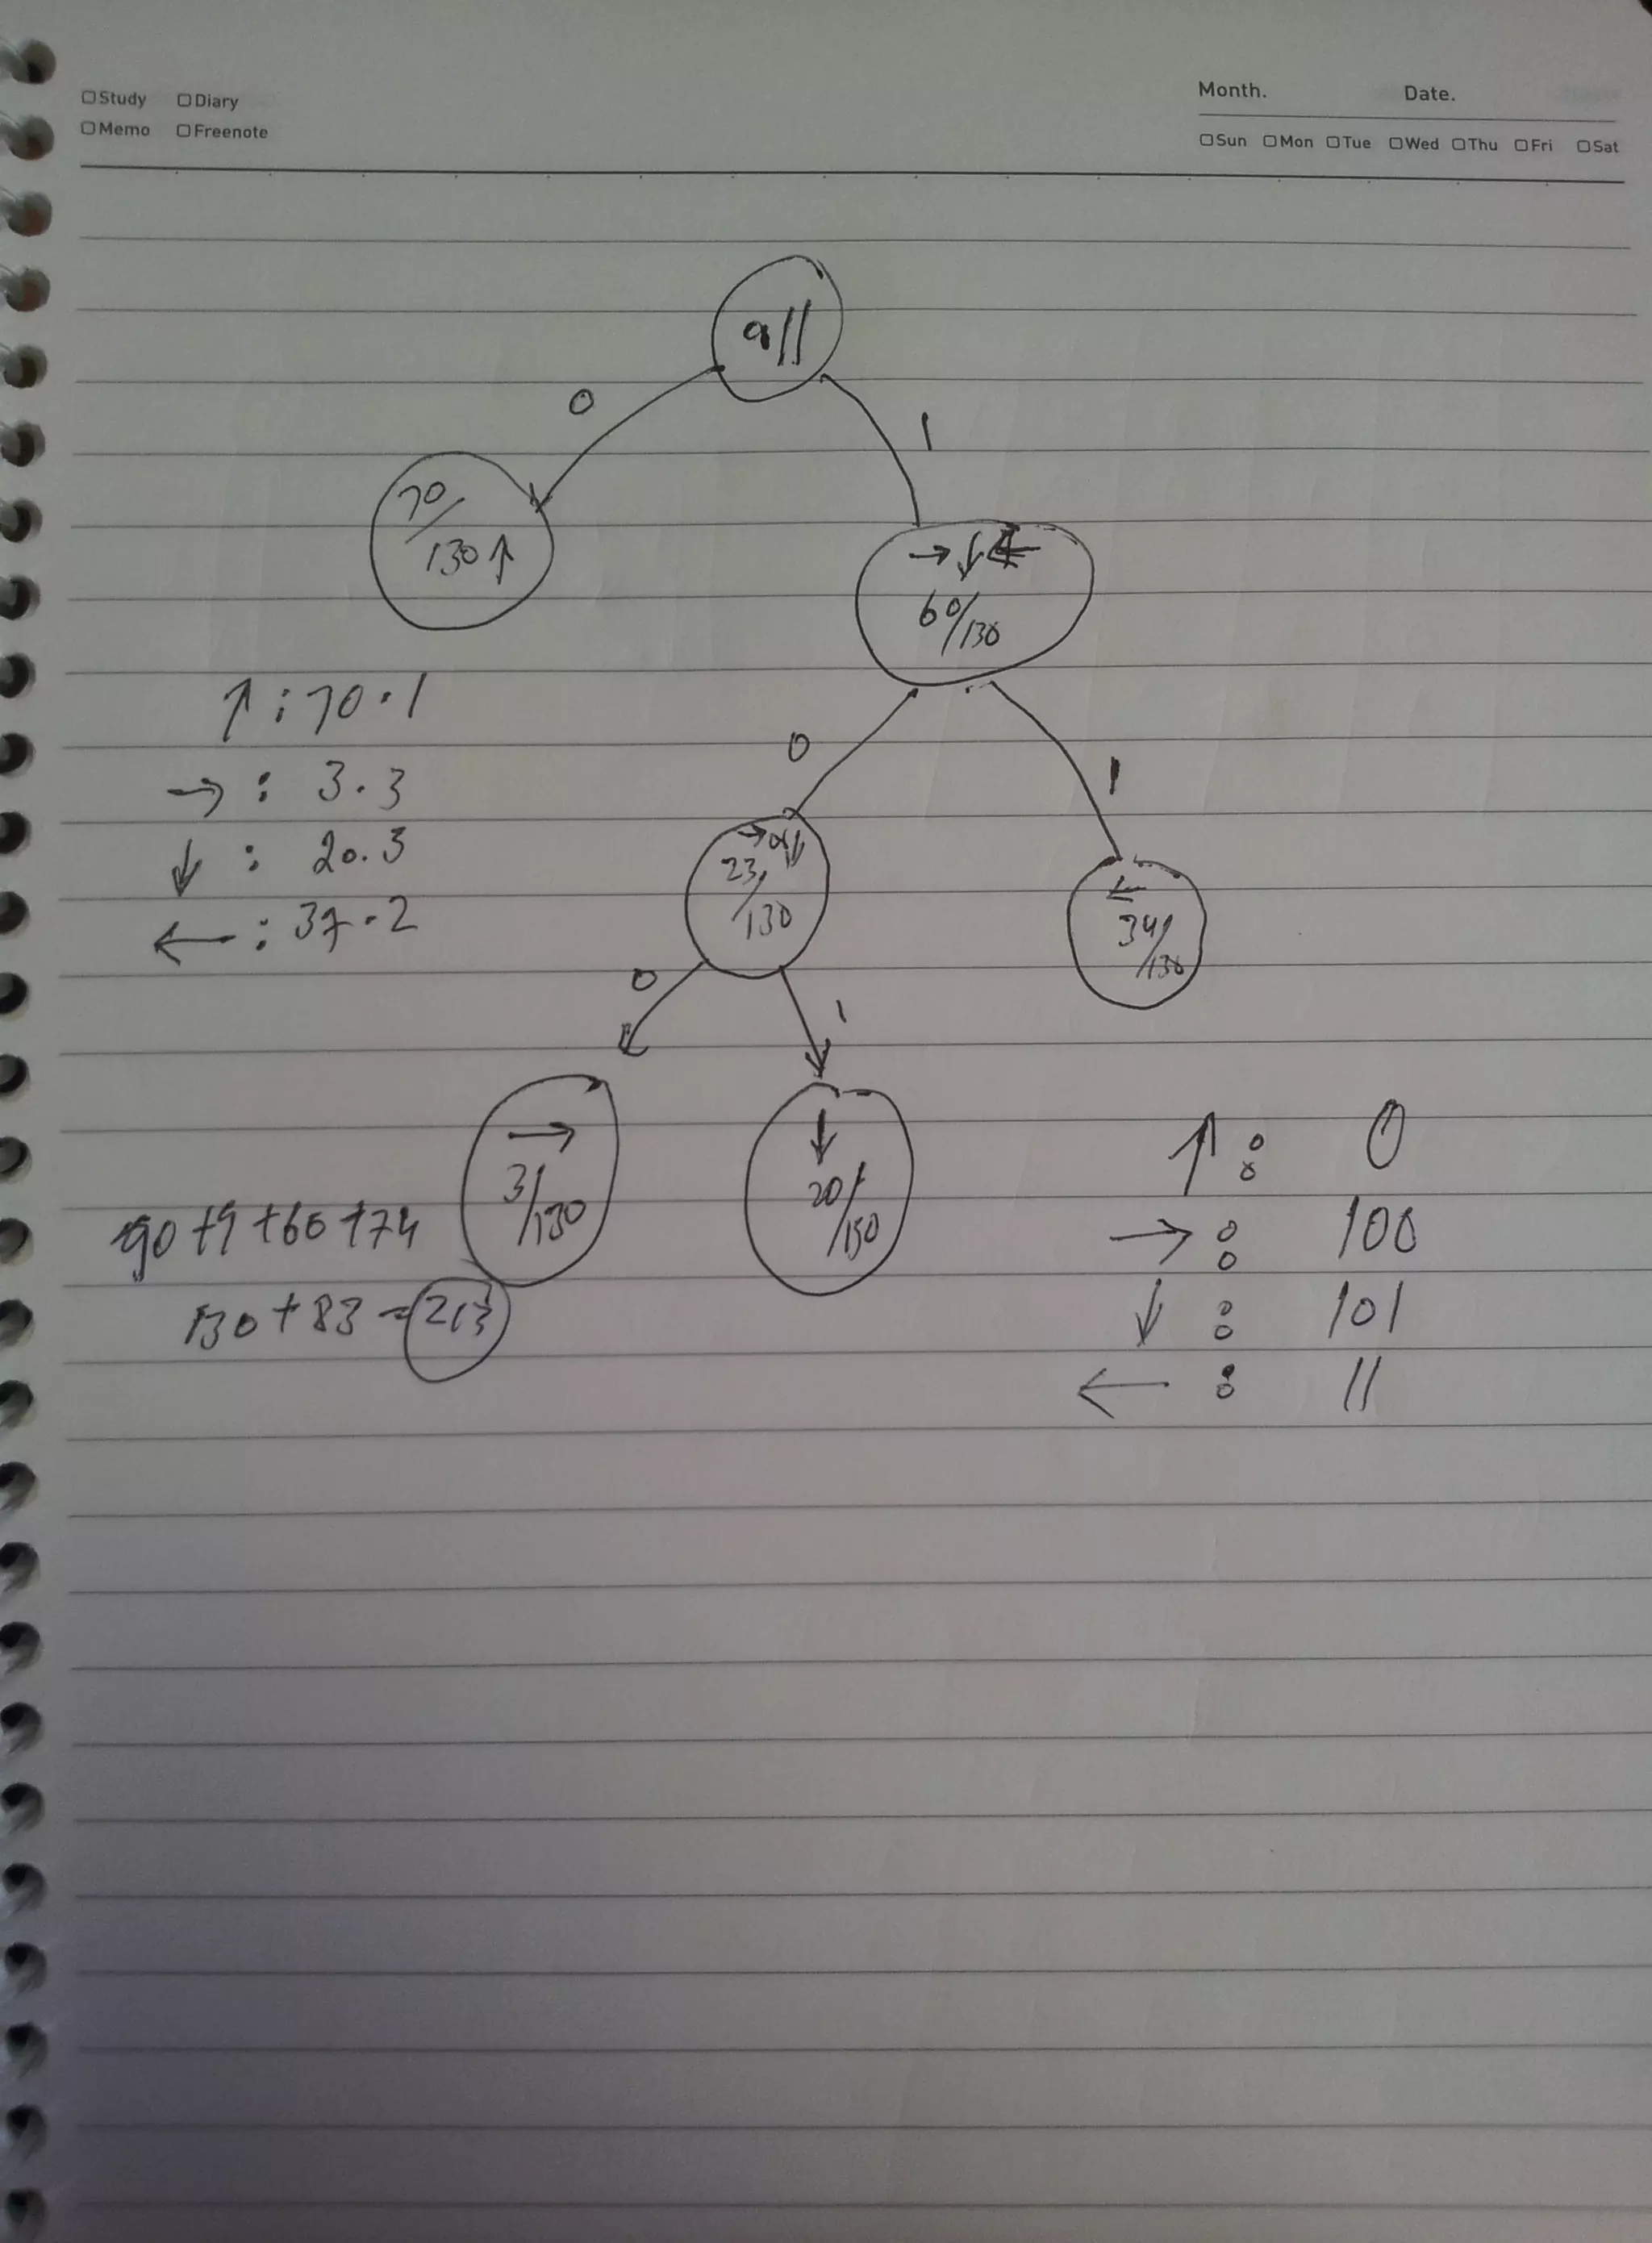 ☐Study ☐Diary
☐Memo ☐Freenote
Month. Date.
☐Sun ☐Mon ☐Tue ☐Wed ☐Thu ☐Fri ☐Sat
all
0 1
70/130↑
→↓←
60/130
↑:70·1
→: 3·3
↓: 20·3
←: 37·2
0 1
→↓
23/130
←
/130
0 1
→
3/130
↓
20/130
+9+60+74
130+83=213
↑: 0
→: 100
↓: 101
←: 11